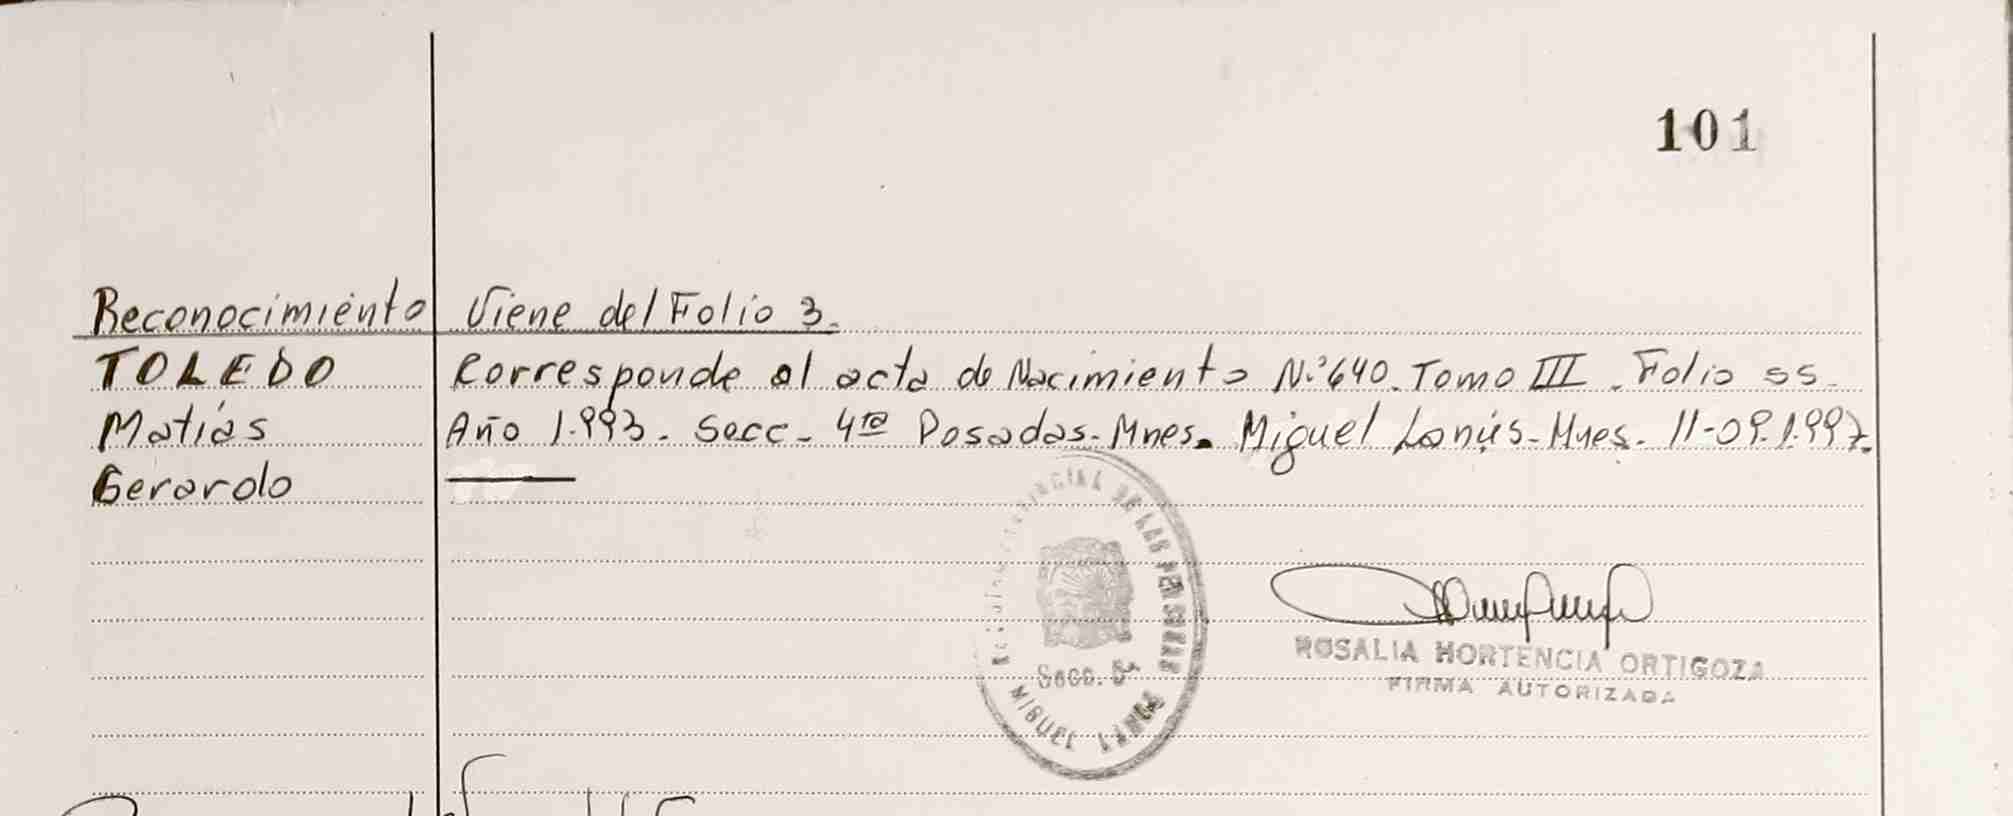 101
Reconocimiento Viene del Folio 3.
TOLEDO Corresponde al acta de Nacimiento N.º 640. Tomo III. Folio 55.
Matías Año 1.993. Secc. 4ta Posadas-Mnes. Miguel Lanús-Mnes. 11-09.1.997.
Gerardo
PROVINCIAL DE LAS PERSONAS
Secc. 5ª
MIGUEL LANUS
ROSALIA HORTENCIA ORTIGOZA
FIRMA AUTORIZADA